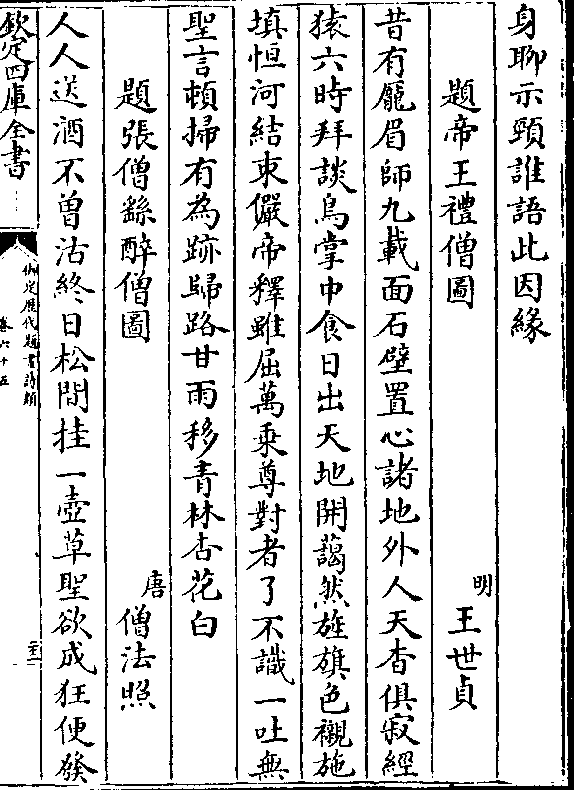 身聊示頸誰語此因緣
題帝王禮僧圖
明王世貞
昔有龎眉師九載面石壁置心諸地外人天杳俱寂經
猿六時拜談鳥掌中食日出天地開藹然旌旗色襯施
填恒河結束儼帝釋雖屈萬乘尊對者了不識一吐無
聖言頓掃有為跡歸路甘雨移青林杏花白
題張僧繇醉僧圖
唐僧法照
人人送酒不曽沽終日松間挂一壺草聖欲成狂便發
欽定四庫全書
御定歷代題畫詩類
卷六十五